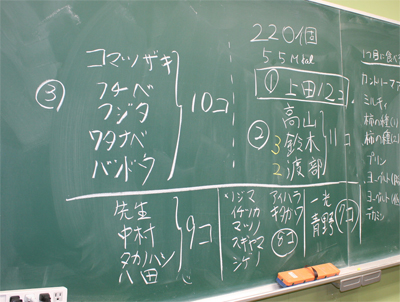 220個
55M
① 上田12コ
② 高山
3 鈴木
2 渡部
11コ
③ コマツザキ
フチベ
フジタ
ワタナベ
バンドウ
10コ
先生
中村
タカノハシ
八田
9コ
ソジマ
イケツカ
マツノ
スギヤマ
シゲノ
アイハラ
キタガワ
8コ
一光
青野
7コ
カントリーファ
ミルティ
柿の種(
柿の種(
プリン
ヨーグルト(
ヨーグルト(